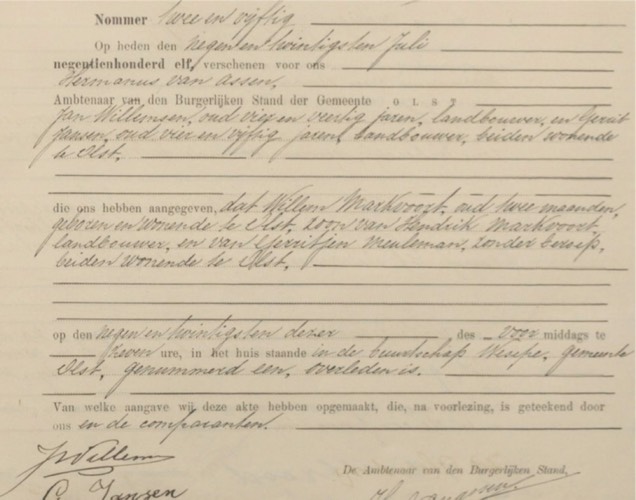 Nommer twee en vijftig
Op heden den negen en twintigsten Juli
negentienhonderd elf, verschenen voor ons
Hermanus van Assen,
Ambtenaar van den Burgerlijken Stand der Gemeente OLST
Jan Willemsen, oud vier en veertig jaren, landbouwer, en Gerrit
Jansen, oud vier en vijftig jaren, landbouwer, beiden wonende
te Olst.
die ons hebben aangegeven, dat Willem Markvoort, oud twee maanden,
geboren en wonende te Olst, zoon van Hendrik Markvoort,
landbouwer, en van Gerritjen Meuleman, zonder beroep,
beiden wonende te Olst,
op den negen en twintigsten dezer des voor middags te
zeven ure, in het huis staande in de buurtschap Wesepe, gemeente
Olst, genummerd een, overleden is.
Van welke aangave wij deze akte hebben opgemaakt, die, na voorlezing, is geteekend door
ons en de comparanten.
JWillems
De Ambtenaar van den Burgerlijken Stand,
G. Jansen